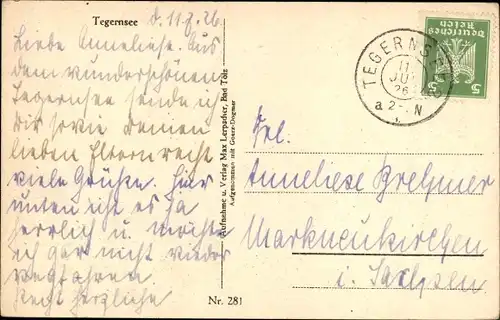 Tegernsee d. 11.7.26.
Liebe Anneliese. Aus
dem wunderschönen
Tegernsee sende ich
Dir sowie Deinen
lieben Eltern recht
viele Grüße. Hier
unten ist es ja
herrlich u. möchte
ich gar nicht wieder
wegfahren.
Recht herzliche
Aufnahme u. Verlag Max Lerpscher, Bad Tölz
Aufgenommen mit Goerz-Dogmar
Nr. 281
Deutsches
Reich
5 5
TEGERNSEE
11
JUL
26
a 2- N
Frl.
Anneliese Brehmer
Markneukirchen
i. Sachsen